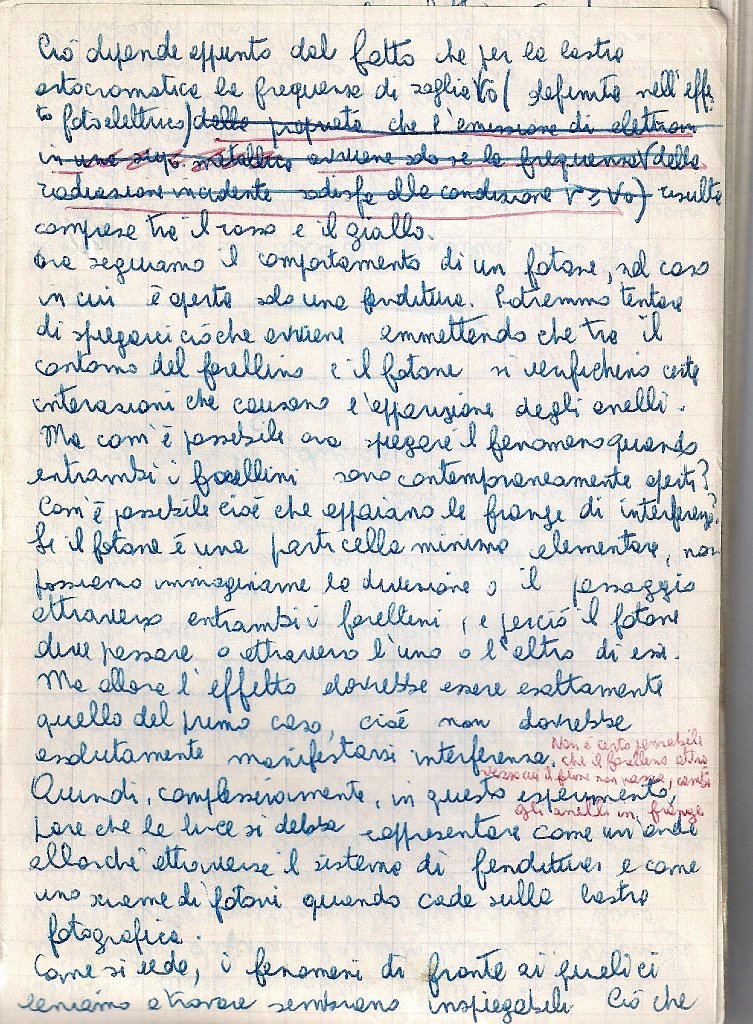 Ciò dipende appunto dal fatto che per la lastra
ortocromatica la frequenza di soglia ν0 ( definita nell'effet-
to fotoelettrico) dalla proprietà che l'emissione di elettroni
in una sup. metallica avviene solo se la frequenza ν della
radiazione incidente sodisfa alla condizione ν ≥ ν0) risulta
compresa tra il rosso e il giallo.
Ora seguiamo il comportamento di un fotone, nel caso
in cui è aperta solo una fenditura. Potremmo tentare
di spiegarci ciò che avviene ammettendo che tra il
contorno del forellino e il fotone si verifichino certe
interazioni che causano l'apparizione degli anelli.
Ma com'è possibile ora spiegare il fenomeno quando
entrambi i forellini sono contemporaneamente aperti?
Com'è possibile cioè che appaiano le frange di interferenza?
Se il fotone è una particella minima elementare, non
possiamo immaginarne la divisione o il passaggio
attraverso entrambi i forellini, e perciò il fotone
deve passare o attraverso l'uno o l'altro di essi.
Ma allora l'effetto dovrebbe essere esattamente
quello del primo caso, cioè non dovrebbe
assolutamente manifestarsi interferenza. Non è certo pensabile
che il forellino attra
verso cui il fotone non passa, cambi
gli anelli in frange
Quindi, complessivamente, in questo esperimento,
pare che la luce si debba rappresentare come un'onda
allorché attraversa il sistema di fenditure e come
uno sciame di fotoni quando cade sulla lastra
fotografica.
Come si vede, i fenomeni di fronte ai quali ci
veniamo a trovare sembrano inspiegabili. Ciò che